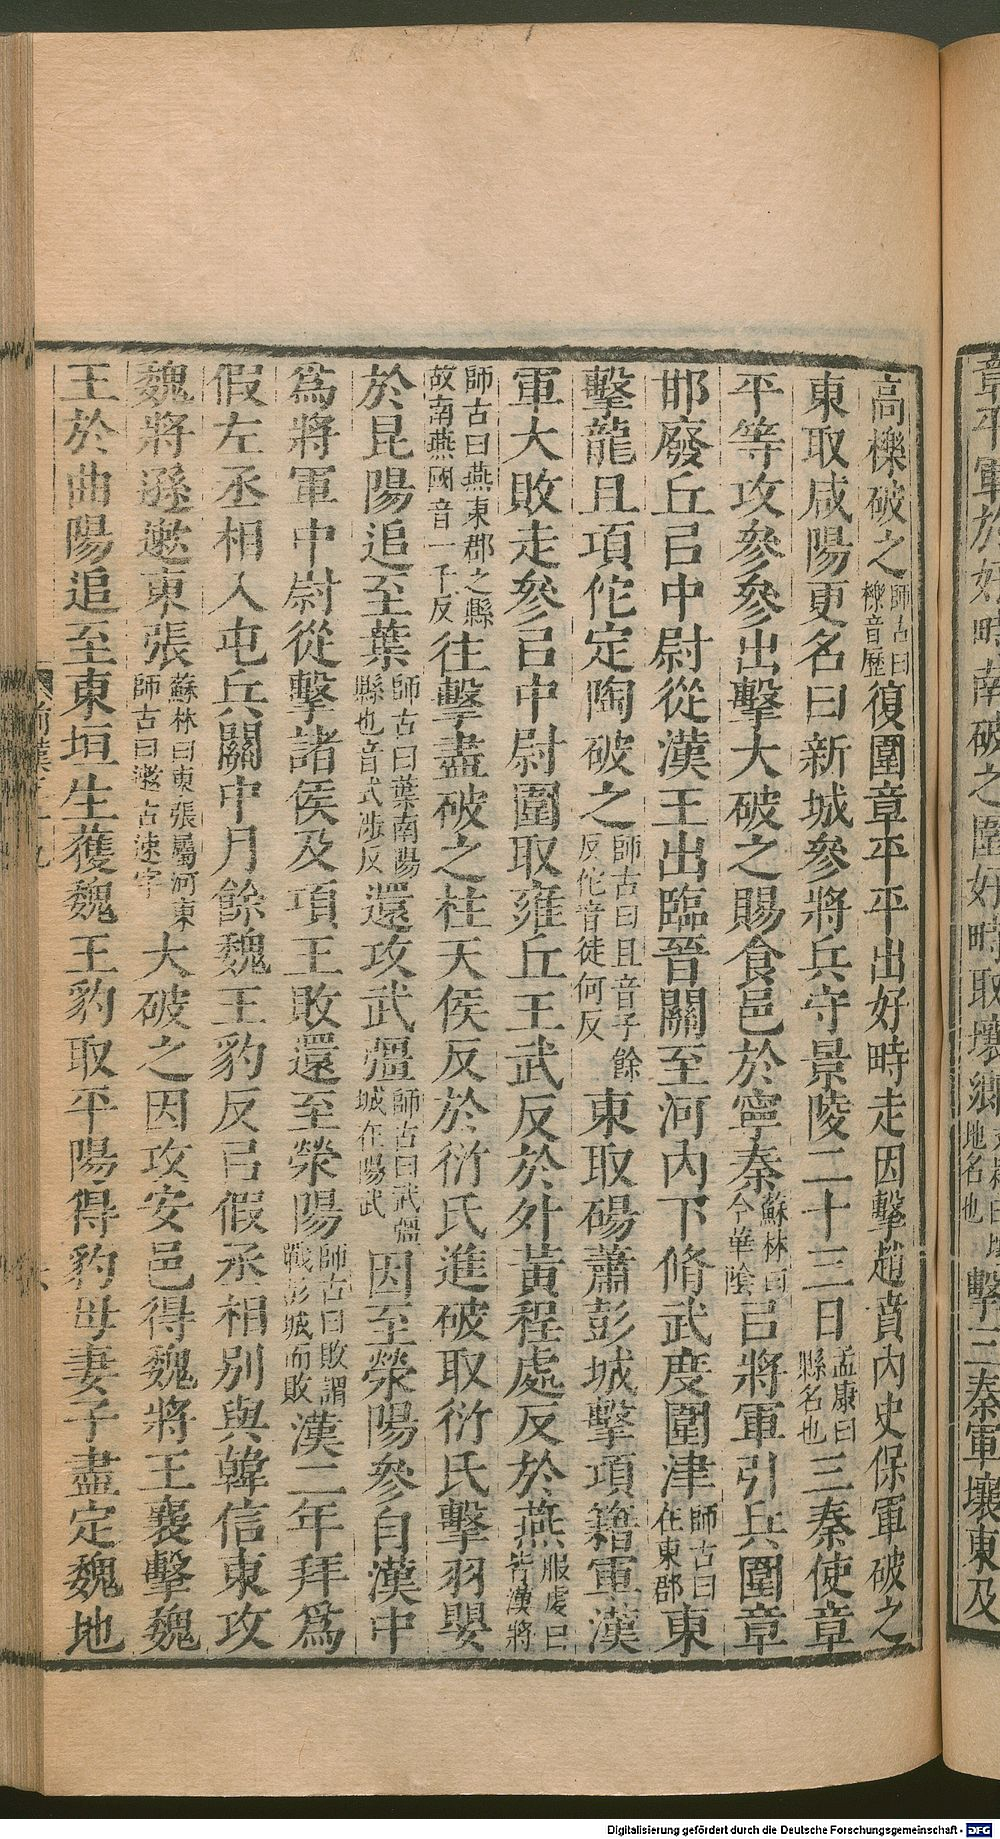 章平軍於好畤南破之圍好畤取壤鄉
地名也
擊三秦軍壤東及
高櫟破之師古曰櫟音歷復圍章平平出好畤走因擊趙賁內史保軍破之
東取咸陽更名曰新城參將兵守景陵二十三日孟康曰縣名也三秦使章
平等攻參參出擊大破之賜食邑於寧秦蘇林曰今華陰㠯將軍引兵圍章
邯廢丘㠯中尉從漢王出臨晉關至河內下脩武度圍津師古曰在東郡東
擊龍且項佗定陶破之師古曰且音子餘反佗音徒何反東取碭蕭彭城擊項籍軍漢
軍大敗走參㠯中尉圍取雍丘王武反於外黃程處反於燕服虔曰皆漢將
師古曰燕東郡之縣故南燕國音一千反往擊盡破之柱天侯反於衍氏進破取衍氏擊羽嬰
於昆陽追至葉師古曰葉南陽縣也音式涉反還攻武彊師古曰武彊城在陽武因至滎陽參自漢中
為將軍中尉從擊諸侯及項王敗還至滎陽師古曰敗謂戰彭城而敗漢二年拜為
假左丞相入屯兵關中月餘魏王豹反㠯假丞相別與韓信東攻
魏將孫遬東張蘇林曰東張屬河東師古曰遬古速字大破之因攻安邑得魏將王襄擊魏
王於曲陽追至東垣生獲魏王豹取平陽得豹母妻子盡定魏地
Digitalisierung gefördert durch die Deutsche Forschungsgemeinschaft - DFG